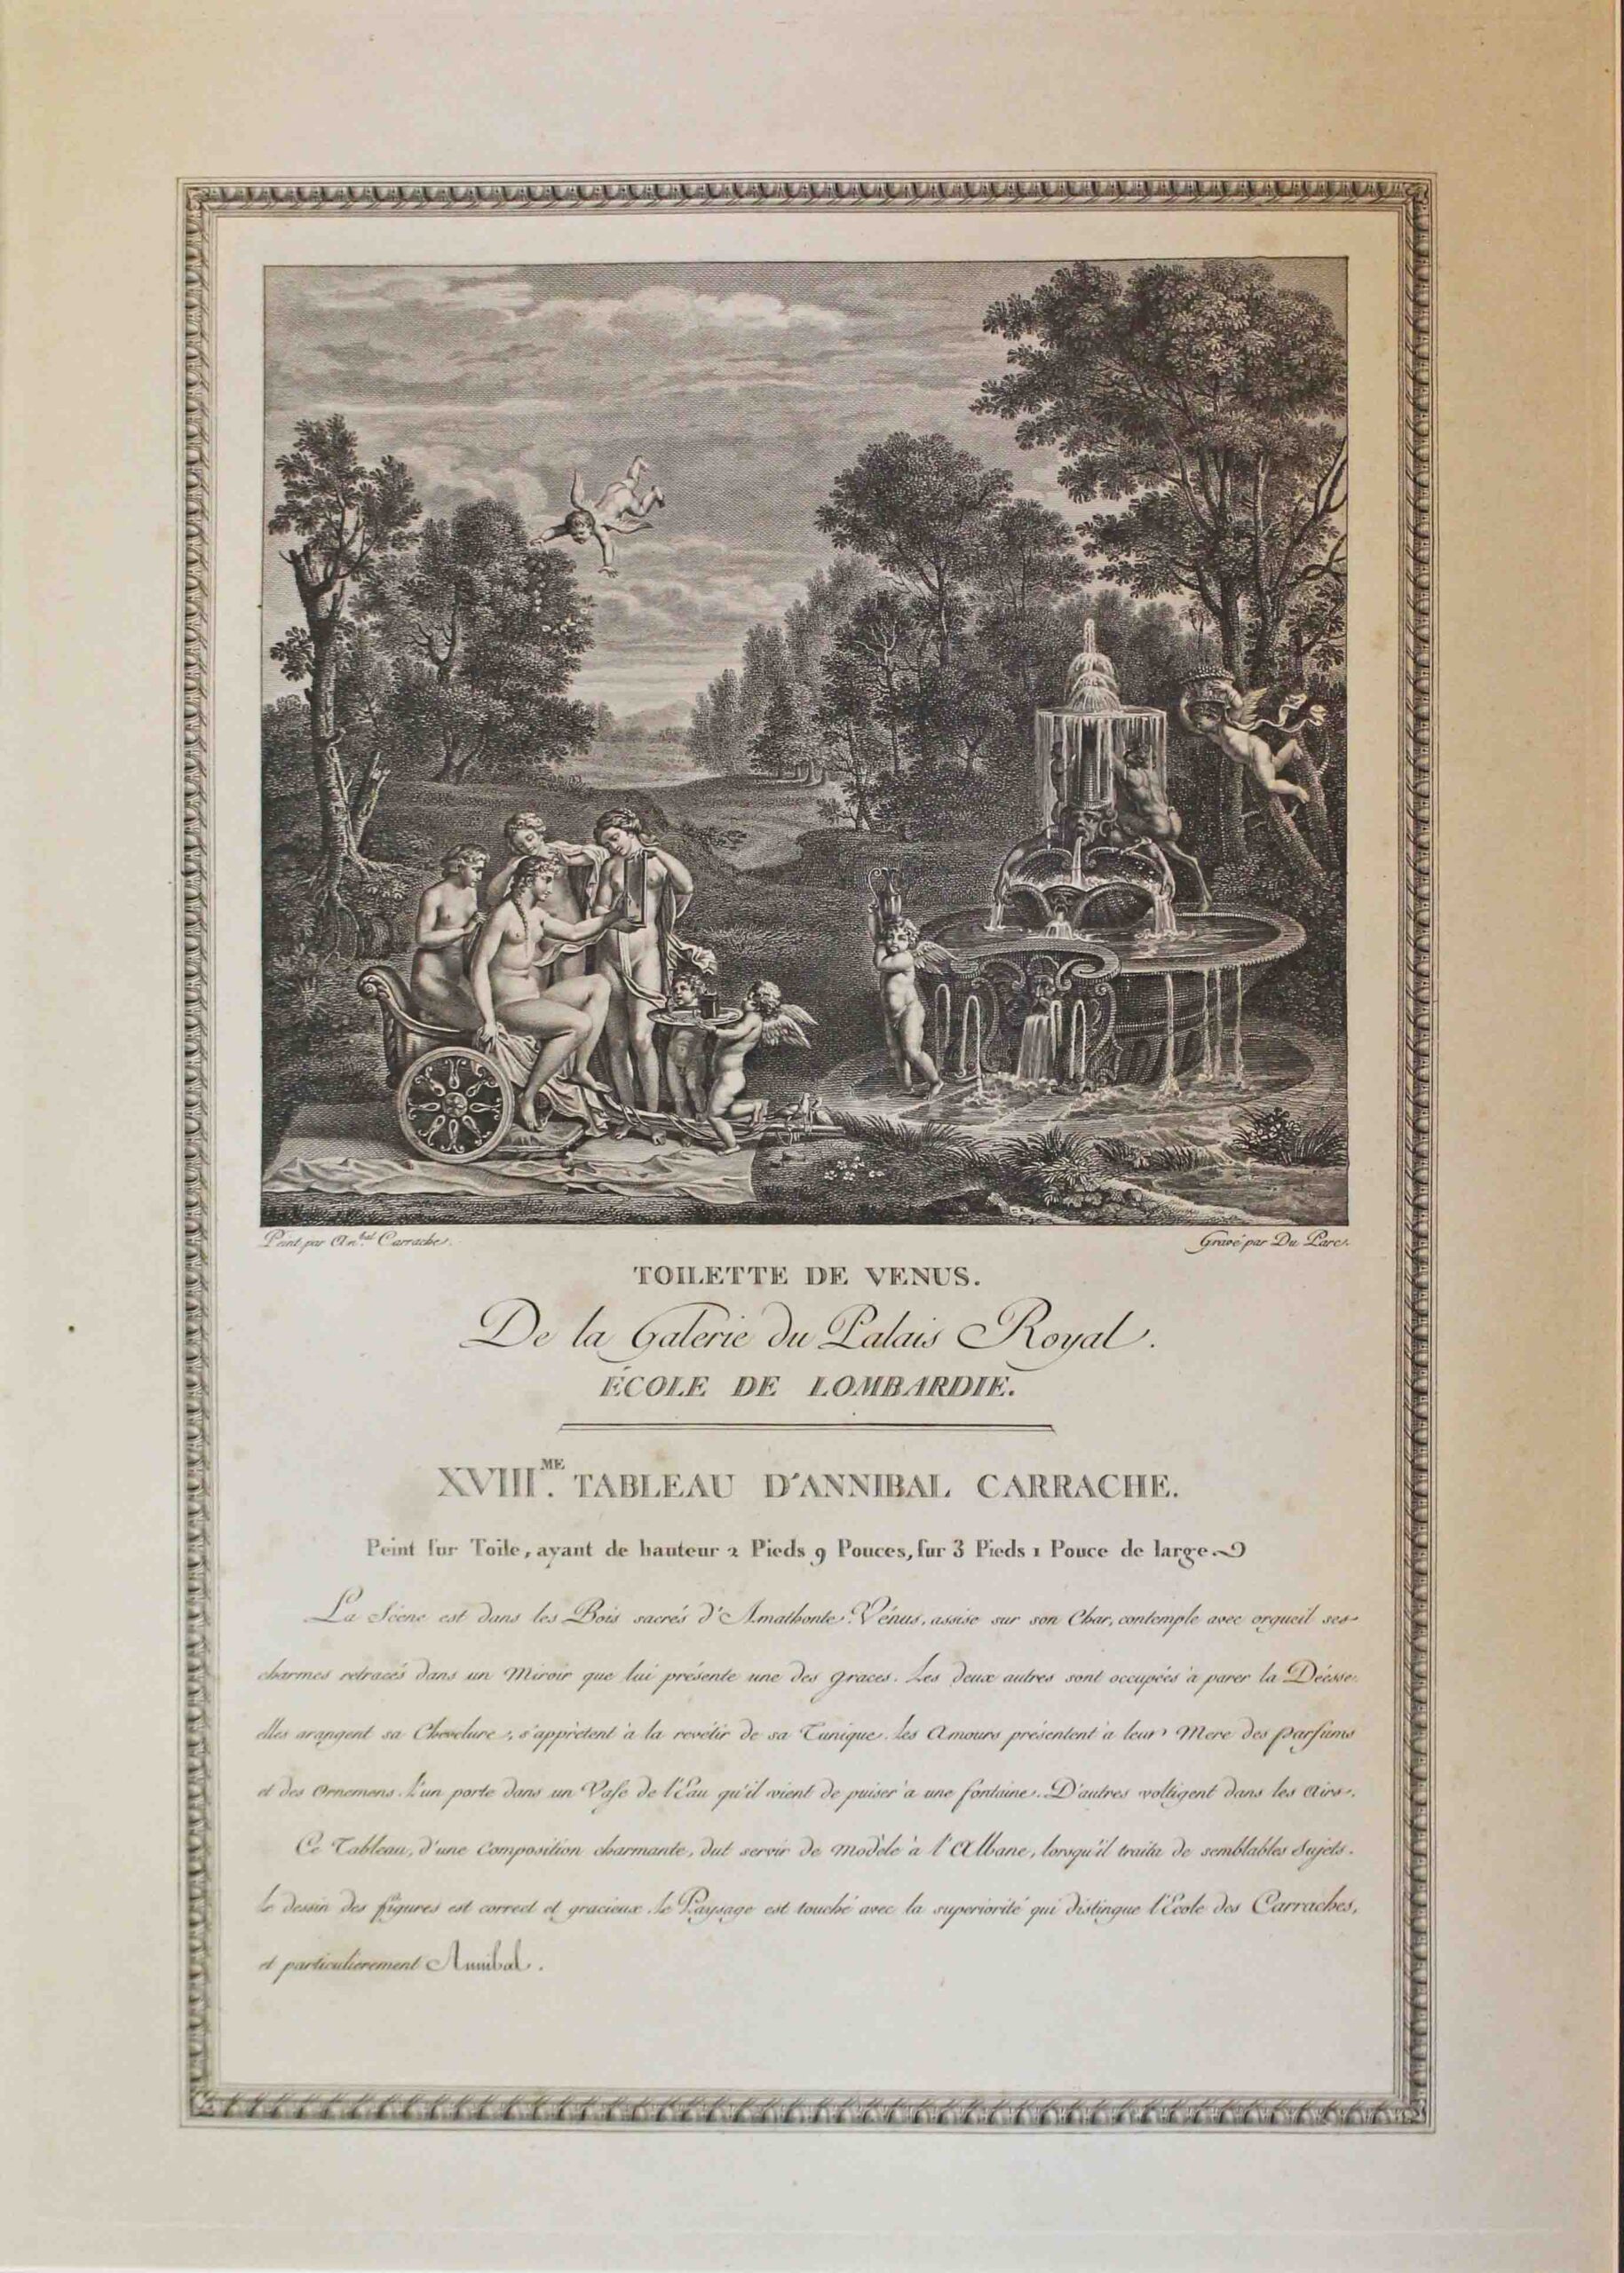 Peint par An.bal Carrache.
Gravé par Du Parc.
TOILETTE DE VENUS.
De la Galerie du Palais Royal.
ÉCOLE DE LOMBARDIE.
XVIII.ME TABLEAU D'ANNIBAL CARRACHE.
Peint sur Toile, ayant de hauteur 2 Pieds 9 Pouces, sur 3 Pieds 1 Pouce de large.
La Scene est dans les Bois sacrés d'Amathonte. Vénus, assise sur son Char, contemple avec orgueil ses
charmes retracés dans un Miroir que lui présente une des graces. Les deux autres sont occupées à parer la Déesse.
elles arangent sa Chevelure, s'apprêtent à la revêtir de sa Tunique. les Amours présentent à leur Mere des parfums
et des Ornemens. L'un porte dans un Vase de l'Eau qu'il vient de puiser à une fontaine. D'autres voltigent dans les Airs.
Ce Tableau, d'une Composition charmante, dut servir de modèle à l'Albane, lorsqu'il traita de semblables Sujets.
le dessin des figures est correct et gracieux. le Paysage est touché avec la superiorité qui distingue l'Ecole des Carraches,
et particulierement Annibal.